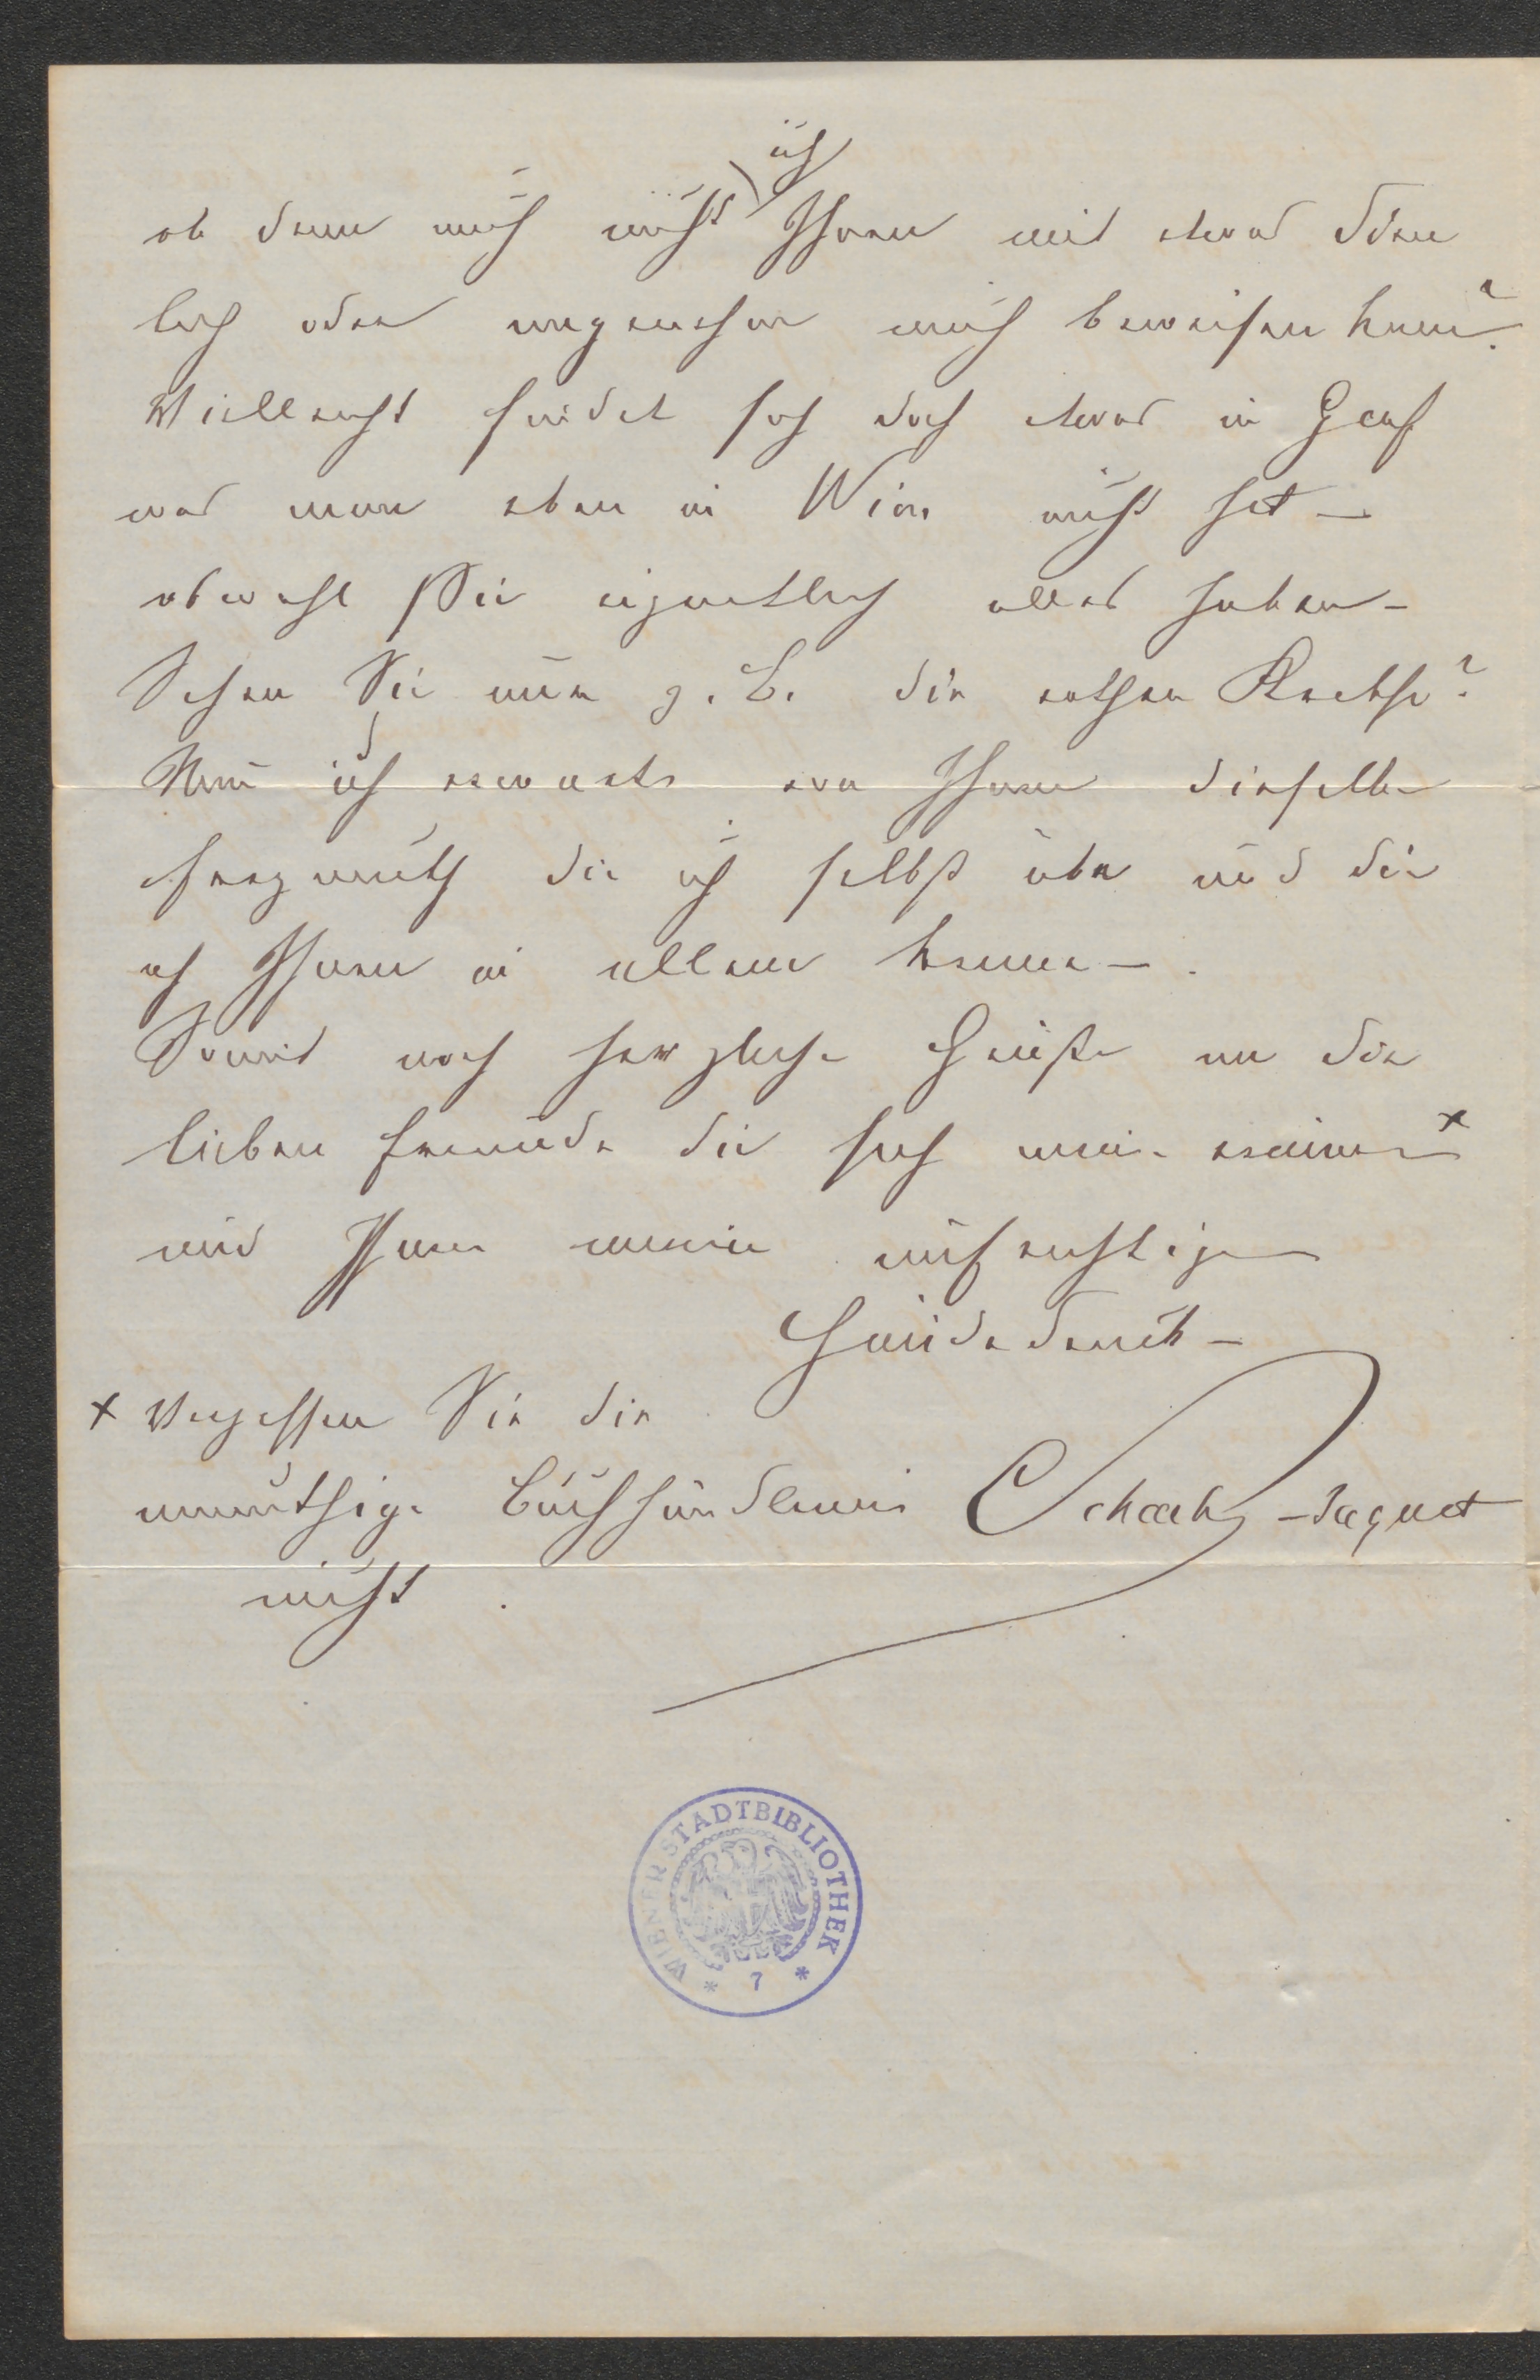 ob denn auch nicht ich Ihnen mit etwas dien
lich oder angenehm mich beweisen kann?
Vielleicht findet sich doch etwas in Genf
was man eben in Wien nicht hat –
obwohl Sie eigentlich alles haben –
Sehen Sie nun z. B. die rothen Krebse?
Nun ich erwarte von Ihnen dieselbe
Freymuth die ich selbst übe und die
ich Ihnen in allem kenne –.
Somit noch herzliche Grüße an die
lieben Freunde die sich mein erinnern x
und Ihnen meinen aufrichtigen
Händedruck –
x Vergessen Sie die
anmuthige Buchhändlerin
nicht.
Schach-Jaquet
WIENER STADTBIBLIOTHEK
* 7 *